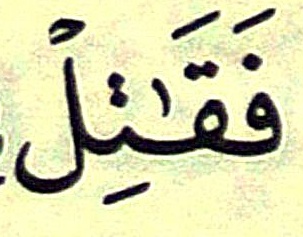 فَقَٰتِلْ